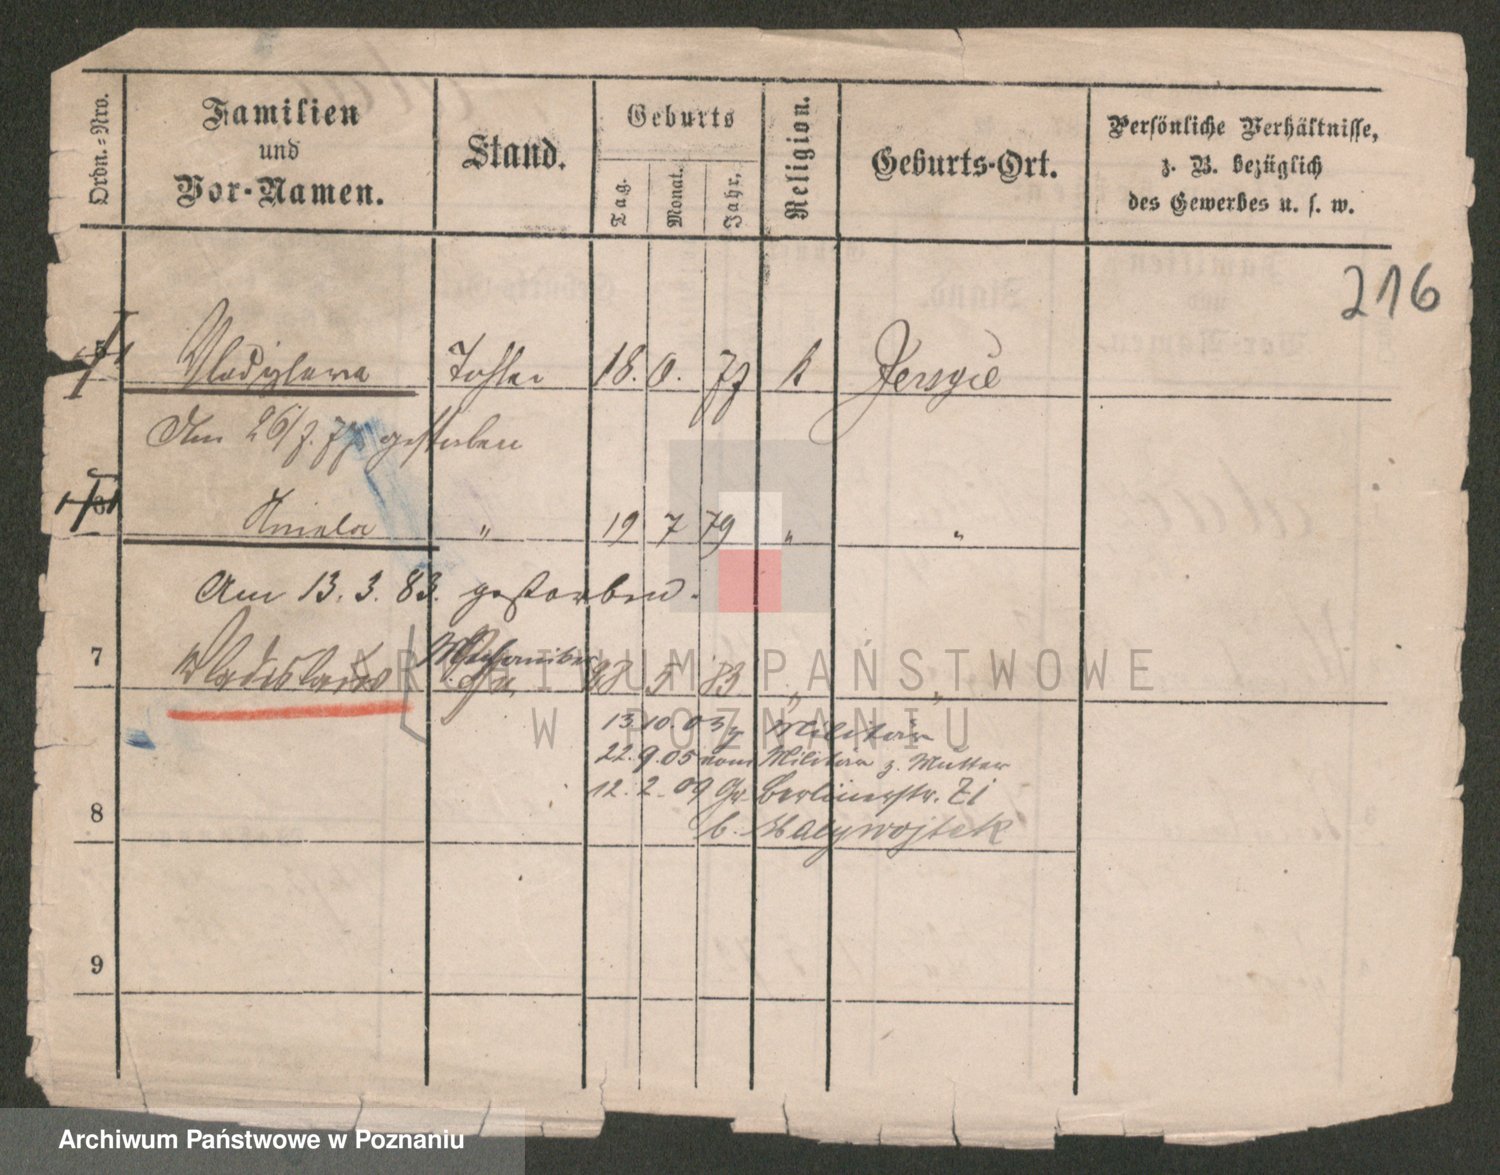 Ordn.-Nro.
Familien
und
Vor-Namen.
Stand.
Geburts
Tag.
Monat.
Jahr.
Religion.
Geburts-Ort.
Persönliche Verhältnisse,
z. B. bezüglich
des Gewerbes u. s. w.
216
5 Wladyslawa Tochter 18. 6. 77 k Jersyce
Am 26/7. 77 gestorben
6 Aniela " 19 7 79 " "
Am 13. 3. 83. gestorben.
Mechaniker
7 Wladislaus 28 5 83 " "
13.10.03 z Militär
22.9.05 vom Militär z. Mutter
8 12. 2. 09 Gr. Berlinerstr. 71
b. Malywojtek
9
ARCHIWUM PAŃSTWOWE
W POZNANIU
Archiwum Państwowe w Poznaniu